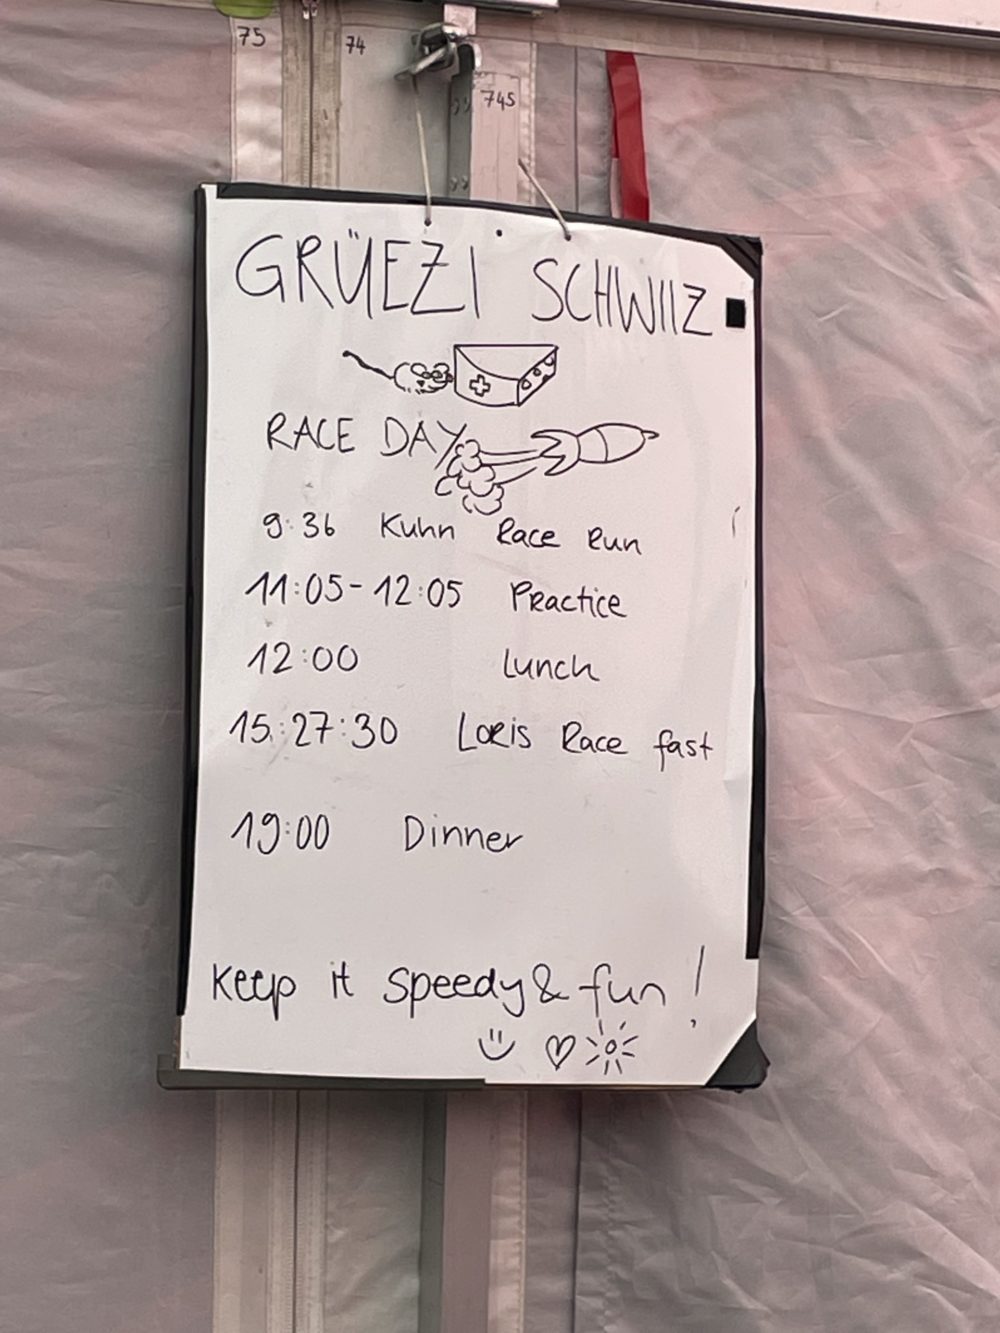 75
74
745
GRÜEZI SCHWIIZ
RACE DAY
9:36 Kuhn Race Run
11:05-12:05 Practice
12:00 Lunch
15:27:30 Loris Race fast
19:00 Dinner
Keep it speedy & fun!